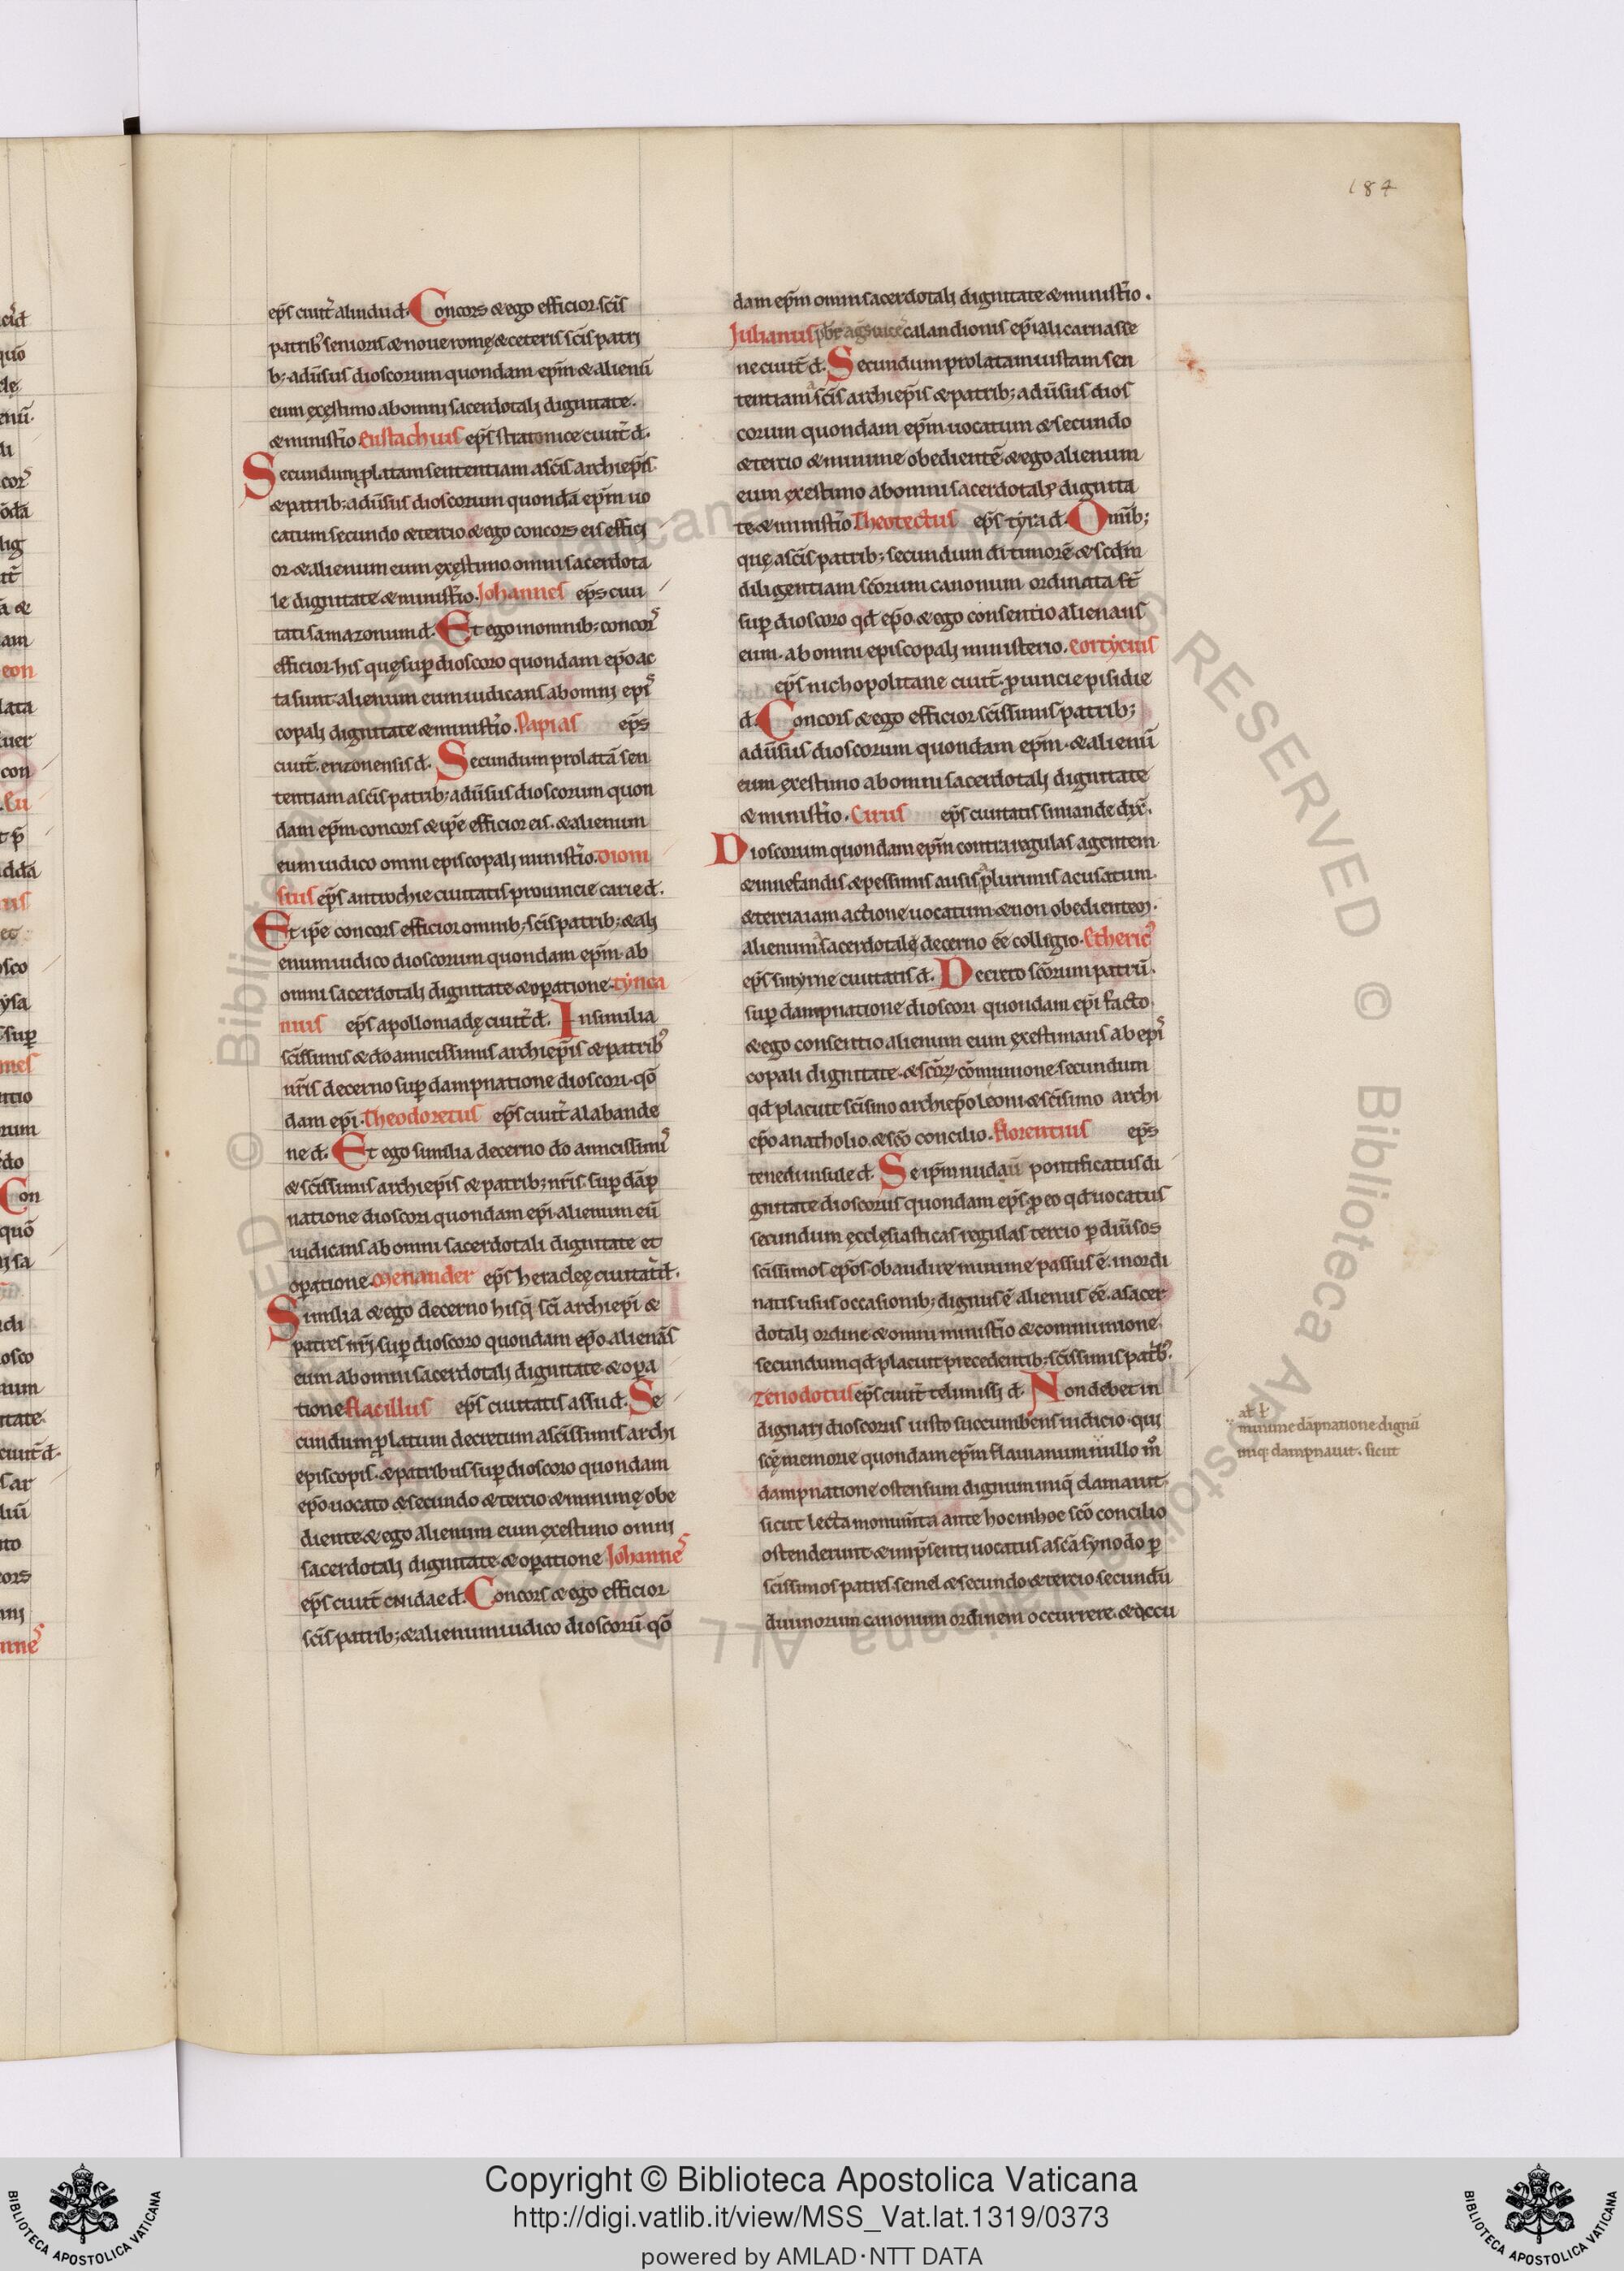 184
ep̄s ciuit̄ alindu d̄. Concors & ego efficior. sc̄is
patrib' senioris & noue romę & ceteris sc̄is patri
b; adūsus dioscorum quondam ep̄m & alienū
eum exęstimo ab omni sacerdotali dignitate.
& minist̄io. Eustachius ep̄s stratonice ciuit̄ d̄.
Secundum platam sententiam a sc̄is archiep̄is
& patrib; adūsus dioscorum quondā ep̄m uo
catum secundo & tercio & ego concors eis effici
or & alienum eum exęstimo omni sacerdota
le dignitate & minist̄io. Johannes ep̄s ciui
tatis amazonum d̄. Et ego in omnib; concors
efficior his quę sup dioscoro quondam ep̄o ac
ta sunt alienum eum iudicans ab omni epis
copali dignitate & minist̄io. Papias ep̄s
ciuit̄. erizonensis d̄. Secundum prolatā sen
tentiam a sc̄is patrib; adūsus dioscorum quon
dam ep̄m concors & ip̄e efficior eis. & alienum
eum iudico omni episcopali minist̄io. Dioni
sius ep̄s antiochie ciuitatis prouincie carie d̄.
Et ip̄e concors efficior omnib; sc̄is patrib; & ali
enum iudico dioscorum quondam ep̄m. ab
omni sacerdotali dignitate & opatione. tynca
nius ep̄s apolloniadę ciuit̄ d̄. Insimilia
sc̄issimis & do amicissimis archiep̄is & patrib'
nr̄is decerno sup dampnatione dioscori. quō
dam ep̄i. Theodoretus ep̄s ciuit̄ alabande
ne d̄. Et ego similia decerno do amicissimis
& sc̄issimis archiep̄is & patrib; nr̄is. sup dāp
natione dioscori quondam ep̄i. alienum eū
iudicans ab omni sacerdotali dignitate et
opatione. Menander ep̄s heracleę ciuitat̄ d̄.
Similia & ego decerno hisq̄ sc̄i archiep̄i &
patres nr̄i sup dioscoro quondam ep̄o. alienās
eum ab omni sacerdotali dignitate & opa
tione flacillus ep̄s ciuitatis assu d̄. Se
cundum platum decretum a sc̄issimis archi
episcopis. & patribus sup dioscoro quondam
ep̄o uocato & secundo & tercio & minimę obe
diente & ego alienum eum exęstimo omni
sacerdotali dignitate & opatione Johannes
ep̄s ciuit̄ cnidae d̄. Concors & ego efficior
sc̄is patrib; & alienum iudico dioscorū quō
dam ep̄m omni sacerdotali dignitate & minist̄io.
Julianus calandionis ep̄i alicarnasse
ne ciuit̄ d̄. Secundum prolatam iustam sen
tentiam sc̄is archiep̄is & patrib; adūsus dios
corum quondam ep̄m uocatum & secundo
& tercio & minime obedientē & ego alienum
eum exęstimo ab omni sacerdotali dignita
te & minist̄io. Theotectus ep̄s tyra d̄. Omib;
quę a sc̄is patrib; secundum di timorē & scdm
diligentiam sc̄orum canonum ordinata st̄
sup dioscoro qd̄ ep̄o. & ego consentio alienans
eum. ab omni episcopali ministerio. eortycius
ep̄s nichopolitane ciuit̄. puincie pisidie
d̄. Concors & ego efficior sc̄issimis patrib;
adūsus dioscorum quondam ep̄m. & alienū
eum exęstimo ab omni sacerdotali dignitate
& minist̄io. Cirus ep̄s ciuitatis siniande dix̄.
Dioscorum quondam ep̄m contra regulas agentem
& in nefandis & pessimis ausis plurimis acusatum.
& tercia iam actione uocatum & non obedientem.
alienum sacerdotale decerno ēē collegio. Etheric'
ep̄s smyrne ciuitatis d̄. Decreto sc̄orum patrū.
sup dampnatione dioscori quondam ep̄i facto
& ego consentio alienum eum exęstimans ab epis
copali dignitate. & sc̄orꝝ cōmunione secundum
qd̄ placuit sc̄isimo archiep̄o leoni & sc̄isimo archi
ep̄o anatholio. & sc̄o concilio. florentius ep̄s
tenedi insule d̄. Se ip̄m nudaū pontificatus di
gnitate dioscorus quondam ep̄s. p eo qd̄ uocatus
secundum ęcclęsiasticas regulas tercio p diūsos
sc̄issimos ep̄os obaudire minime passus ē. inordi
natis usus occasionib; dignus ē alienus ēē. a sacer
dotali ordine & omni minist̄io & communione.
secundum qd̄ placuit precedentib; sc̄issimis patb'.
Zenodotus ep̄s ciuit̄ telmissi d̄. Non debet in
dignari dioscorus iusto succumbens iudicio. qui
sc̄ę memorie quondam ep̄m flauianum nullo m̊
dampnatione ostensum dignum iniq̄ damauit.
sicut lecta monum̄ta ante hoc in hoc sc̄o concilio
ostenderunt. & inp̄senti uocatus a sc̄ā synodo p
sc̄issimos patres. semel & secundo & tercio secundū
diuinorum canonum ordinem occurrere. & occu
minime dāpnatione dignū
iniq. dampnauit. sicut
Copyright © Biblioteca Apostolica Vaticana
http://digi.vatlib.it/view/MSS_Vat.lat.1319/0373
powered by AMLAD·NTT DATA
BIBLIOTECA APOSTOLICA VATICANA
BIBLIOTECA APOSTOLICA VATICANA